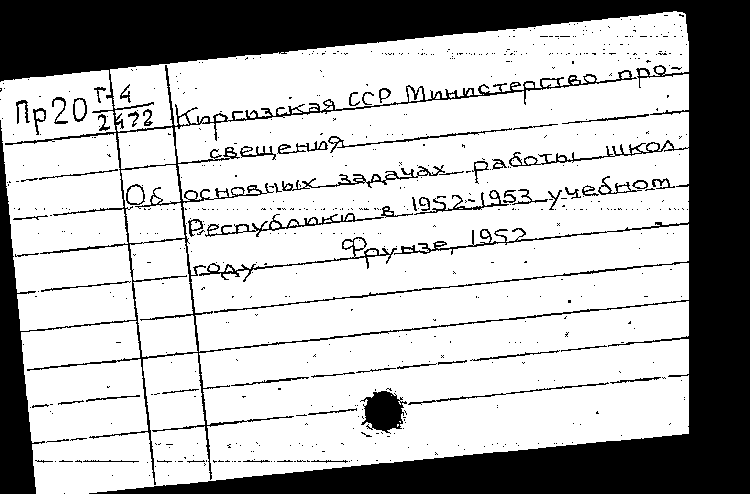 Пр20 Г-4
2472
Киргизская ССР Министерство про-
свещения
Об основных задачах работы школ
Республики в 1952-1953 учебном
году. Фрунзе, 1952